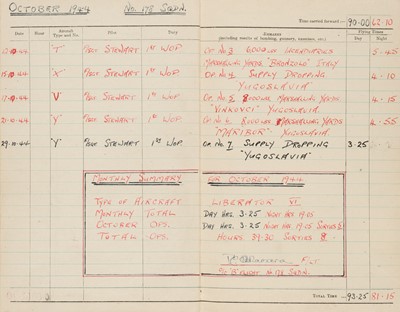 OCTOBER 1944 No. 178 SQDN.
Time carried forward :— 90-00 62-10
Date Hour Aircraft Type and No. Pilot Duty REMARKS Flying Times
(including results of bombing, gunnery, exercises, etc.) Day Night
10-44 'T' PILOT STEWART 1ST WOP. OP. No 3 8000LB
MARSHALLING YARDS ITALY 5-45
10-44 'X' PILOT STEWART 1ST WOP. OP. No 4 SUPPLY DROPPING
YUGOSLAVIA 4-10
10-44 'V' PILOT STEWART 1ST WOP OP. No 5 MARSHALLING YARDS
"VINKOVCI" YUGOSLAVIA 4-15
10-44 'Y' PILOT STEWART 1ST WOP. OP. No 6 MARSHALLING YARDS
"MARIBOR" YUGOSLAVIA 4-55
29-10-44 'V' PILOT STEWART 1ST WOP OP. No 7 SUPPLY DROPPING
"YUGOSLAVIA" 3-25
MONTHLY SUMMARY FOR OCTOBER 1944
TYPE OF AIRCRAFT LIBERATOR VI
MONTHLY TOTAL DAY HRS. 3-25 NIGHT HRS 19-05
OCTOBER OPS. DAY HRS. 3-25 NIGHT HRS 19-05 SORTIES
TOTAL OPS. HOURS SORTIES 8
F/LT
FLIGHT 178 SQDN.
TOTAL TIME 93-25 81-15